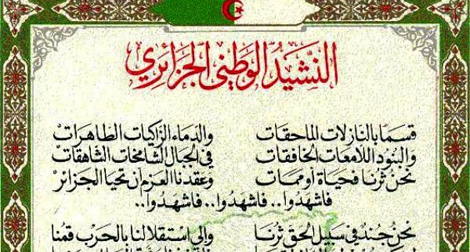 النشيد الوطني الجزائري
قسما بالنازلات الماحقات والدماء الزاكيات الطاهرات
والبنود اللامعات الخافقات في الجبال الشامخات الشاهقات
نحن ثرنا فحياة أو ممات وعقدنا العزم أن تحيا الجزائر
فاشهدوا.. فاشهدوا.. فاشهدوا..
نحن جند في سبيل الحق ثرنا وإلى استقلالنا بالحرب قمنا